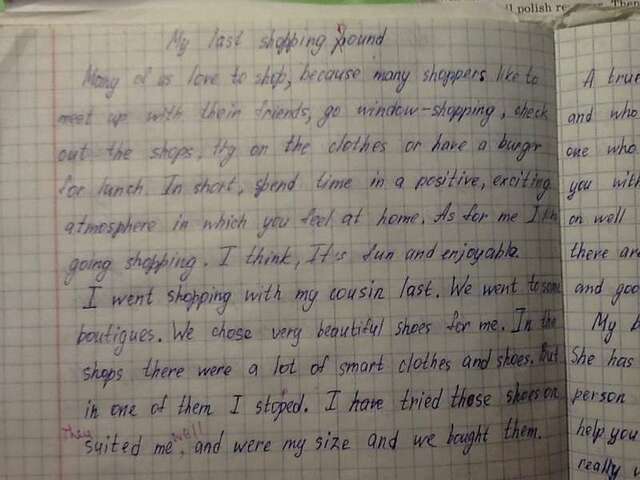 My last shopping round
Many of us love to shop, because many shoppers like to
meet up with their friends, go window-shopping, check
out the shops, try on the clothes or have a burger
for lunch. In short, spend time in a positive, exciting
atmosphere in which you feel at home. As for me I
going shopping. I think, It is fun and enjoyable.
I went shopping with my cousin last. We went to
boutiques. We chose very beautiful shoes for me. In
shops there were a lot of smart clothes and shoes, but
in one of them I stoped. I have tried those shoes on
they well
suited me, and were my size and we bought them.
and who
one who
you
on well
there are
and good
My
She has
person
help you
really
polish